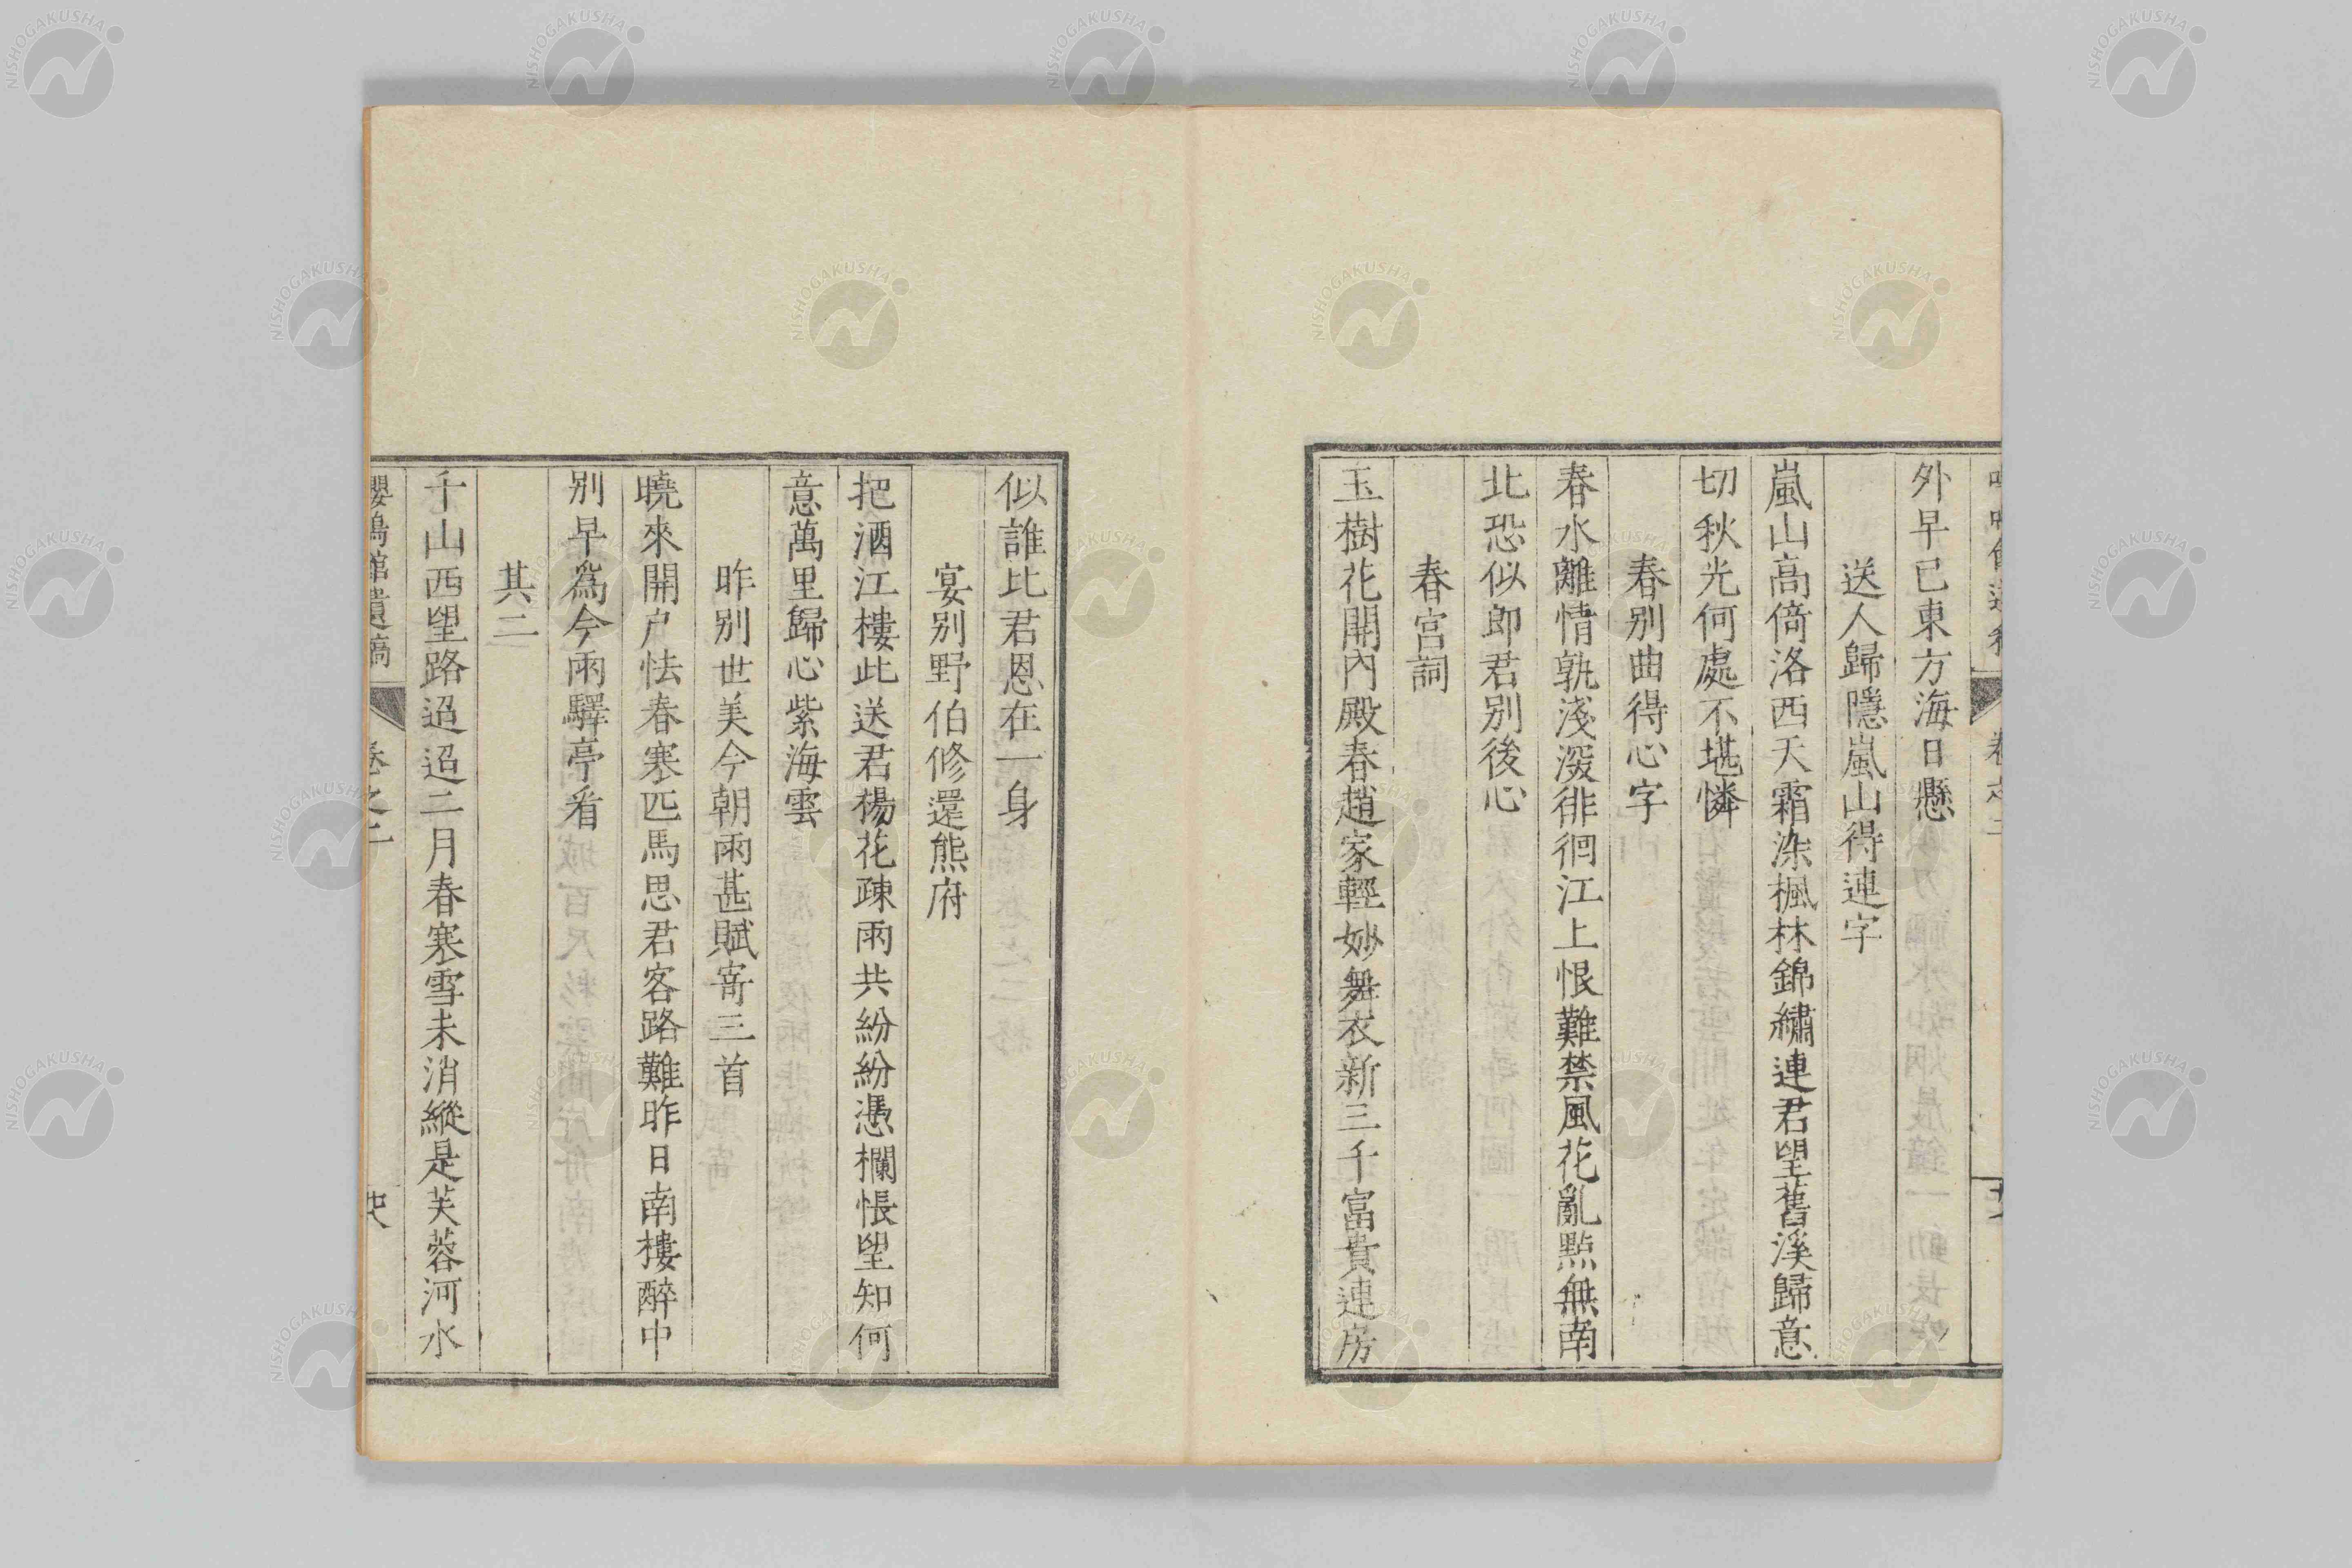 外早已東方海日懸
送人歸隱嵐山得連字
嵐山高倚洛西天霜染楓林錦繡連君望舊溪歸意
切秋光何處不堪憐
春別曲得心字
春水離情孰淺深徘徊江上恨難禁風花亂點無南
北恐似郎君別後心
春宮詞
玉樹花開內殿春趙家輕妙舞衣新三千富貴連房
似誰比君恩在一身
宴別野伯修還熊府
把酒江樓此送君楊花疎雨共紛紛憑欄悵望知何
意萬里歸心紫海雲
昨別世美今朝雨甚賦寄三首
曉來開戶怯春寒匹馬思君客路難昨日南樓醉中
別早爲今雨驛亭看
其二
千山西望路迢迢二月春寒雪未消縱是芙蓉河水
嚶鳴館遺稿 卷之二